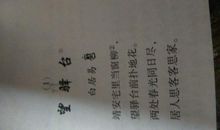 望驿台①
白居易
靖安宅里当窗柳②，
望驿台前扑地花。
两处春光同日尽，
居人思客客思家。